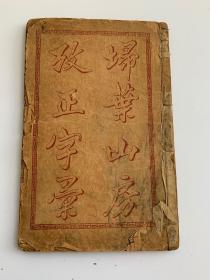 埽葉山房
攷正字彙